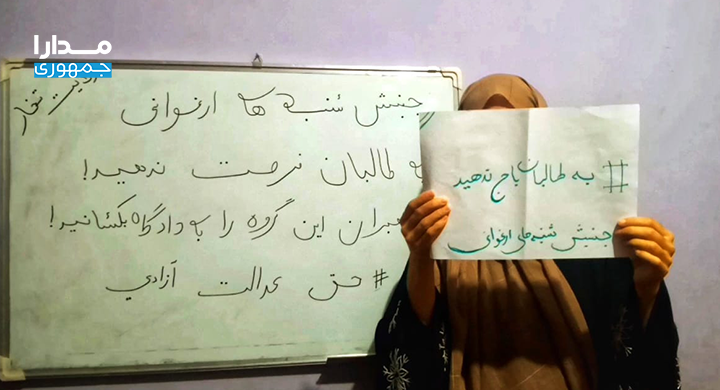 مدارا
جمهوری
تخار
جنبش شنبه ها ارغوانی
به طالبان فرصت ندهید!
رهبران این گروه را به دادگاه بکشانید!
# حق عدالت آزادی
# به طالبان باج ندهید
جنبش شنبه‌های ارغوانی